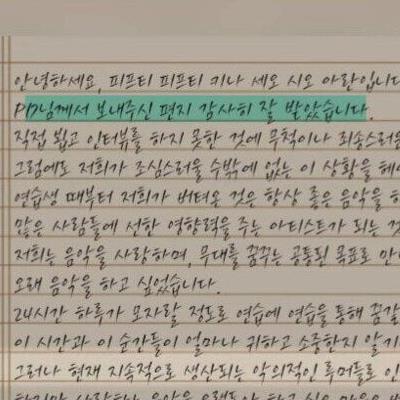 안녕하세요, 피프티 피프티 키나 새나 시오 아란입니다
PD님께서 보내주신 편지 감사히 잘 받았습니다.
직접 뵙고 인터뷰를 하지 못한 것에 무척이나 죄송스러운
그럼에도 저희가 조심스러울 수밖에 없는 이 상황을 헤아
연습생 때부터 저희가 버텨온 것은 항상 좋은 음악을 하
많은 사람들에 선한 영향력을 주는 아티스트가 되는 것
저희는 음악을 사랑하며, 무대를 꿈꾸는 공통된 목표로 만
오래 음악을 하고 싶었습니다.
24시간 하루가 모자랄 정도로 연습에 연습을 통해 꿈같
이 시간과 이 순간들이 얼마나 귀하고 소중한지 알기
그러나 현재 지속적으로 생산되는 악의적인 루머들로 인
하지만 사랑하는 음악을 오래도록 하고 싶은 마음은